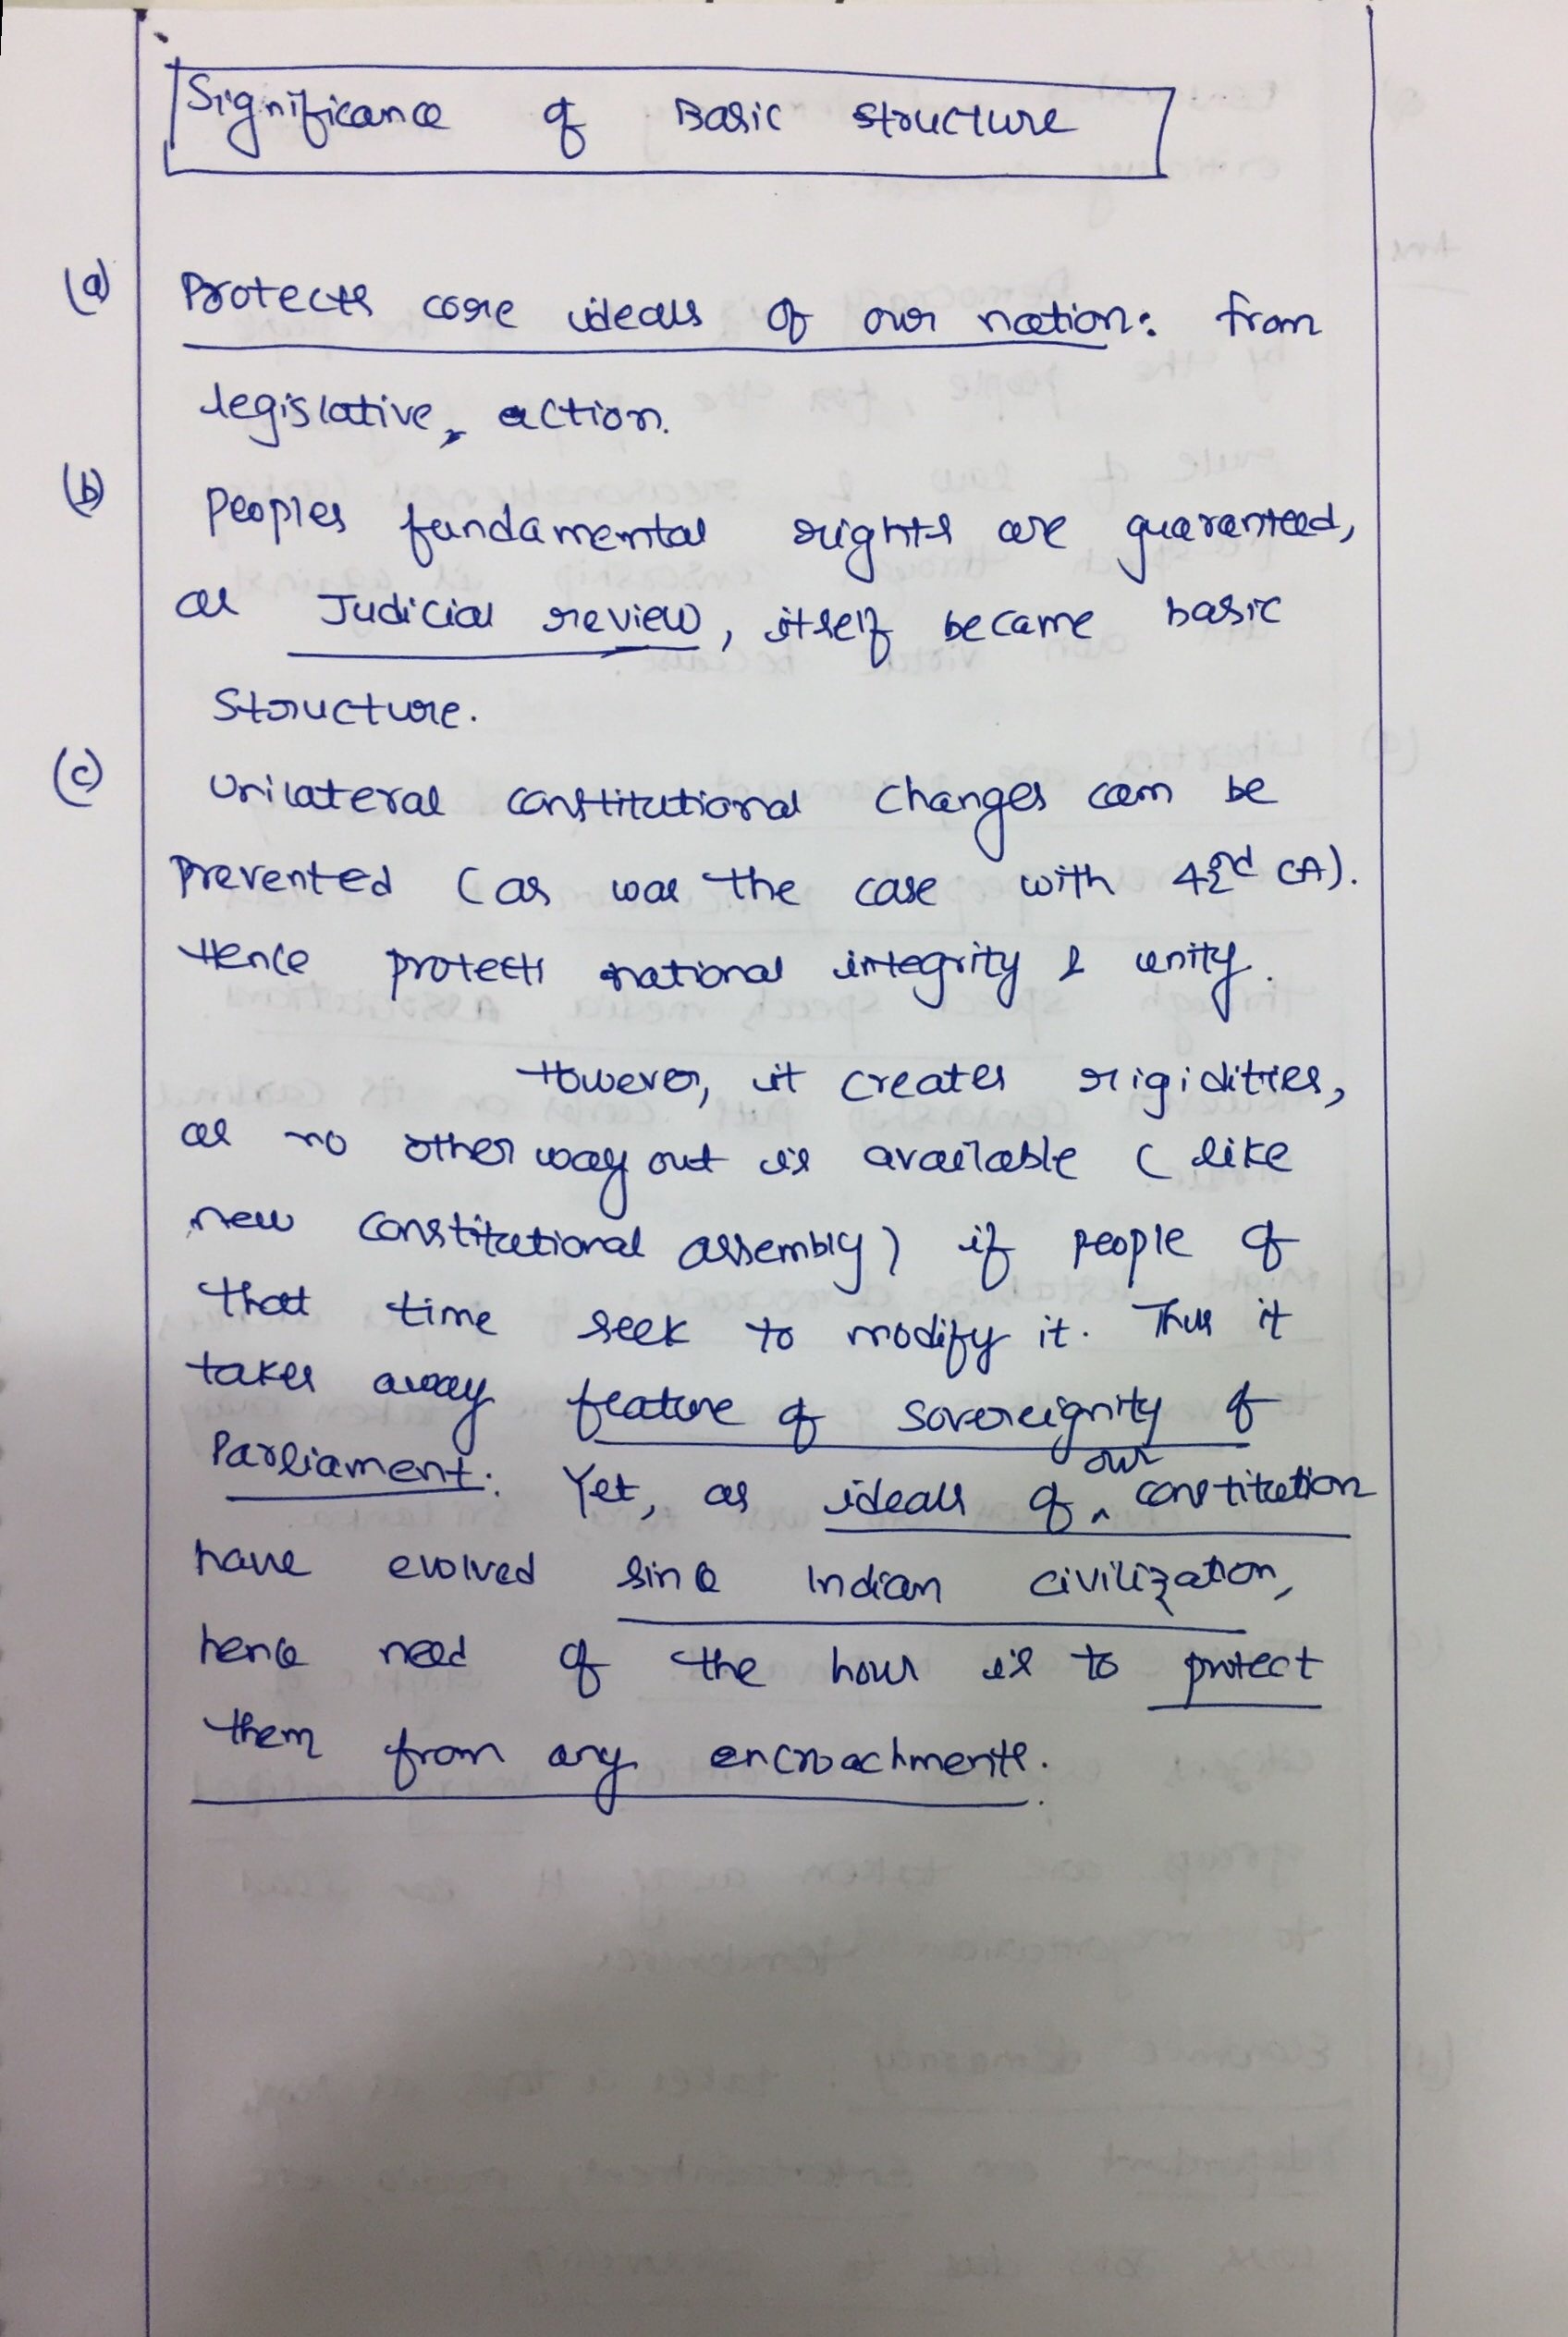 Significance of Basic Structure
(a) Protects core ideals of our nation: from
legislative, action.
(b) Peoples fundamental rights are guaranteed,
as Judicial review, itself became basic
Structure.
(c) Unilateral constitutional changes can be
prevented (as was the case with 42nd CA).
Hence protects national integrity & unity.
However, it creates rigidities,
as no other way out is available (like
new constitutional assembly) if people of
that time seek to modify it. Thus it
takes away feature of sovereignity of
Parliament. Yet, as ideals of our constitution
have evolved since Indian civilization,
hence need of the hour is to protect
them from any encroachments.